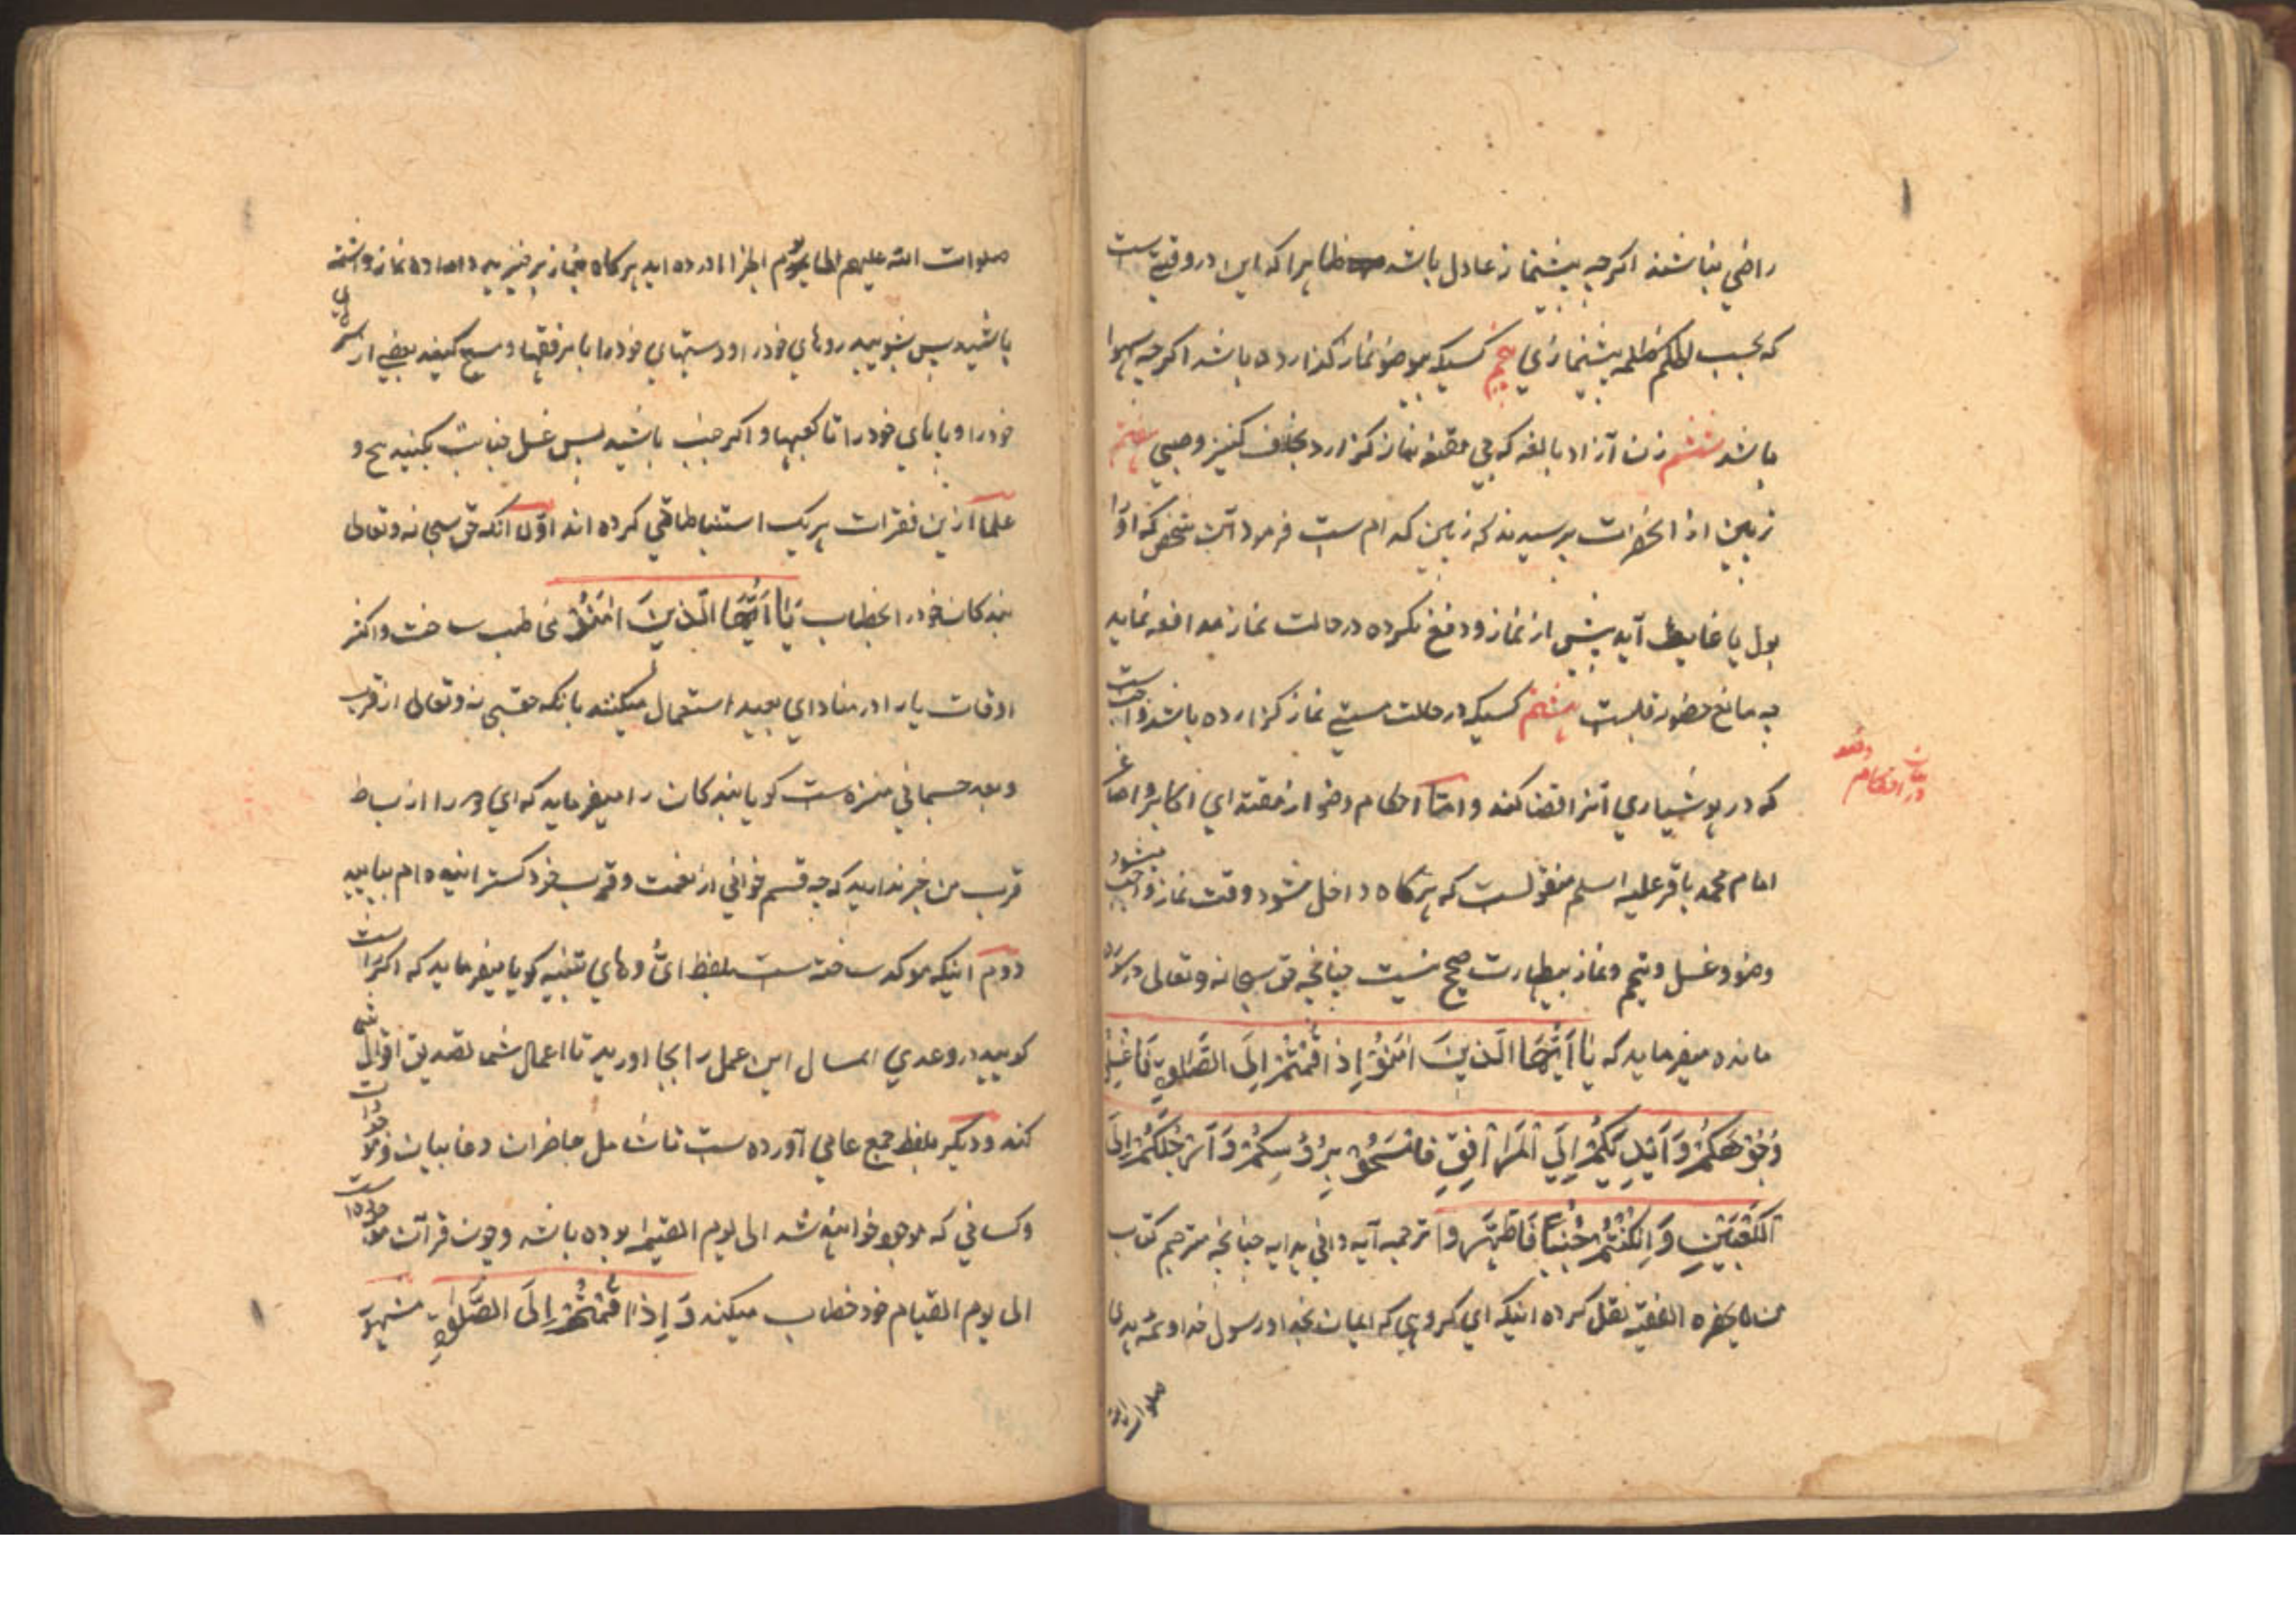 راضي نباشند اکرچه پیشنماز عادل باشد ظاهرا که این در وقتي ست
که بحسب ظلمه پیشنمازي پنجم کسیکه بیوضو نماز کذارده باشد اکرچه سهوا
باشد ششم زن آزاد بالغه که بي مقنعه نماز کزارد بخلاف کنیز و صبي هفتم
زبین از انحضرات پرسیدند که زبین کدام ست فرمود آن شخص که اورا
بول یا غایط آید پیش از نماز و دفع نکرده در حالت نماز مدافعه نماید
چه مانع حضور قلبست هشتم کسیکه در حالت مستي نماز کزارده باشد واجب ست
که در هوشیاري آنرا قضا کند و امّا احکام وضو از مقتداي اکابر و اصاغر
در بیان احکام وضو
امام محمد باقر علیه السلم منقولست که هرکاه داخل مشود وقت نماز واجب میشود
وضو و غسل و تیمم و نماز بیطهارت صحیح نیست چنانچه حق سبحانه و تعالی در سوره
مائده میفرماید که یَا اَیُّهَا الَّذِینَ اٰمَنُوْ اِذَا قُمْتُمْ اِلَی الصَّلٰوةِ فَاغْسِلُوْ
وُجُوْهَکُمْ وَ اَیْدِیَکُمْ اِلَی الْمَرَافِقِ فَامْسَحُوْ بِرُؤُسِکُمْ وَ اَرْجُلَکُمْ اِلَی
الْکَعْبَیْنِ وَ اِنْکُنْتُمْ جُنُبًا فَاطَّهَّرُوا ترجمه آیه وافي هدایه چنانچه مترجم کتاب
من لا یحضره الفقیه نقل کرده اینکه اي کروهي که ایمان بخدا و رسول خدا و ائمه هدی
صلوات الله
صلوات الله علیهم اورده اید هرکاه بنماز برخیزید و اراده نماز داشته
باشید پس بشویید روهاي خود را و دستهاي خود را با مرفقها و مسح کنید بعضي از سرهاي
خود را و پاهاي خود را تا کعبها و اکر جنب باشید پس غسل جنابت بکنید و
علما ازین فقرات هر یک استنباطاتي کرده اند اوّل آنکه حق سبحانه و تعالی
بندکان خود را بخطاب یَا اَیُّهَا الَّذِینَ اٰمَنُوْ مخاطب ساخت و اکثر
اوقات یا را در مناداي بعید استعمال میکنند بانکه حقسبحانه و تعالی از قرب
و بعد جسماني منزه ست کویا بندکان را میفرماید که اي از بساط
قرب من خبر ندارید که چه قسم خواني از نعمت و قرب خود کسترانیده ام بیایید
دویم اینکه موکد ساخته ست بلفظ ايُّ و هاي تنبیه کویا میفرماید که اکر راست
کویید در وعدي ارسال این عمل را بجا اورید تا اعمال شما تصدیق اقوال شما
کند و دیکر بلفظ جمع عامي آورده ست تا شامل حاضران و غایبان و موجودات
و کساني که موجود خواهند شد الی یوم القیمه بوده باشد و چون قرآن
الی یوم القیام خود خطاب میکند وَ اِذَا قُمْتُمْ اِلَی الصَّلٰوةِ مشهور